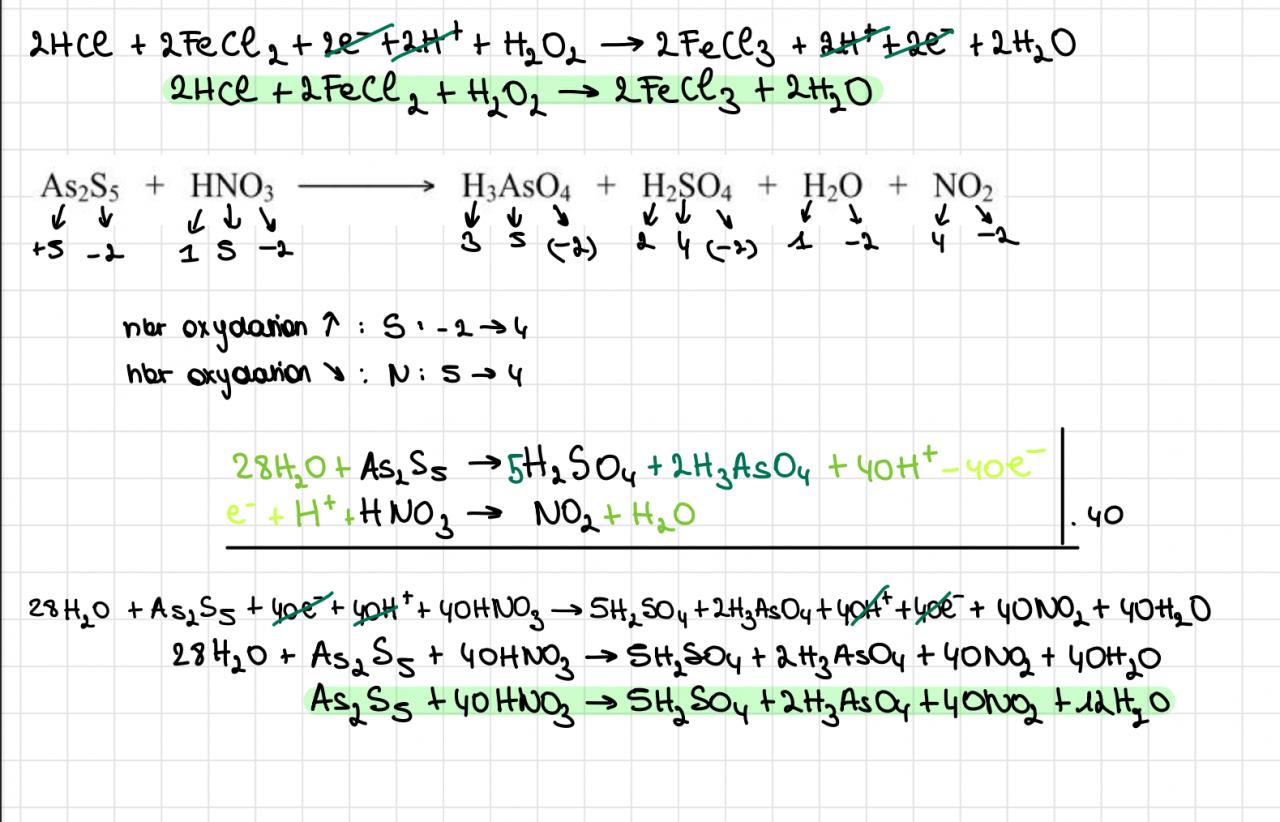 2HCl + 2FeCl₂ + 2e⁻ + 2H⁺ + H₂O₂ → 2FeCl₃ + 2H⁺ + 2e⁻ + 2H₂O
2HCl + 2FeCl₂ + H₂O₂ → 2FeCl₃ + 2H₂O
As₂S₅ + HNO₃ ⟶ H₃AsO₄ + H₂SO₄ + H₂O + NO₂
↙ ↓ ↙ ↓ ↘ ↓ ↓ ↘ ↙ ↓ ↘ ↙ ↘ ↙ ↘
+5 -2 1 5 -2 3 5 (-2) 2 4 (-2) 1 -2 4 -2
nbr oxydation ↑ : S : -2 → 4
nbr oxydation ↘ : N : 5 → 4
28H₂O + As₂S₅ → 5H₂SO₄ + 2H₃AsO₄ + 40H⁺ - 40e⁻
e⁻ + H⁺ + HNO₃ → NO₂ + H₂O | . 40
28H₂O + As₂S₅ + 40e⁻ + 40H⁺ + 40HNO₃ → 5H₂SO₄ + 2H₃AsO₄ + 40H⁺ + 40e⁻ + 40NO₂ + 40H₂O
28H₂O + As₂S₅ + 40HNO₃ → 5H₂SO₄ + 2H₃AsO₄ + 40NO₂ + 40H₂O
As₂S₅ + 40HNO₃ → 5H₂SO₄ + 2H₃AsO₄ + 40NO₂ + 12H₂O